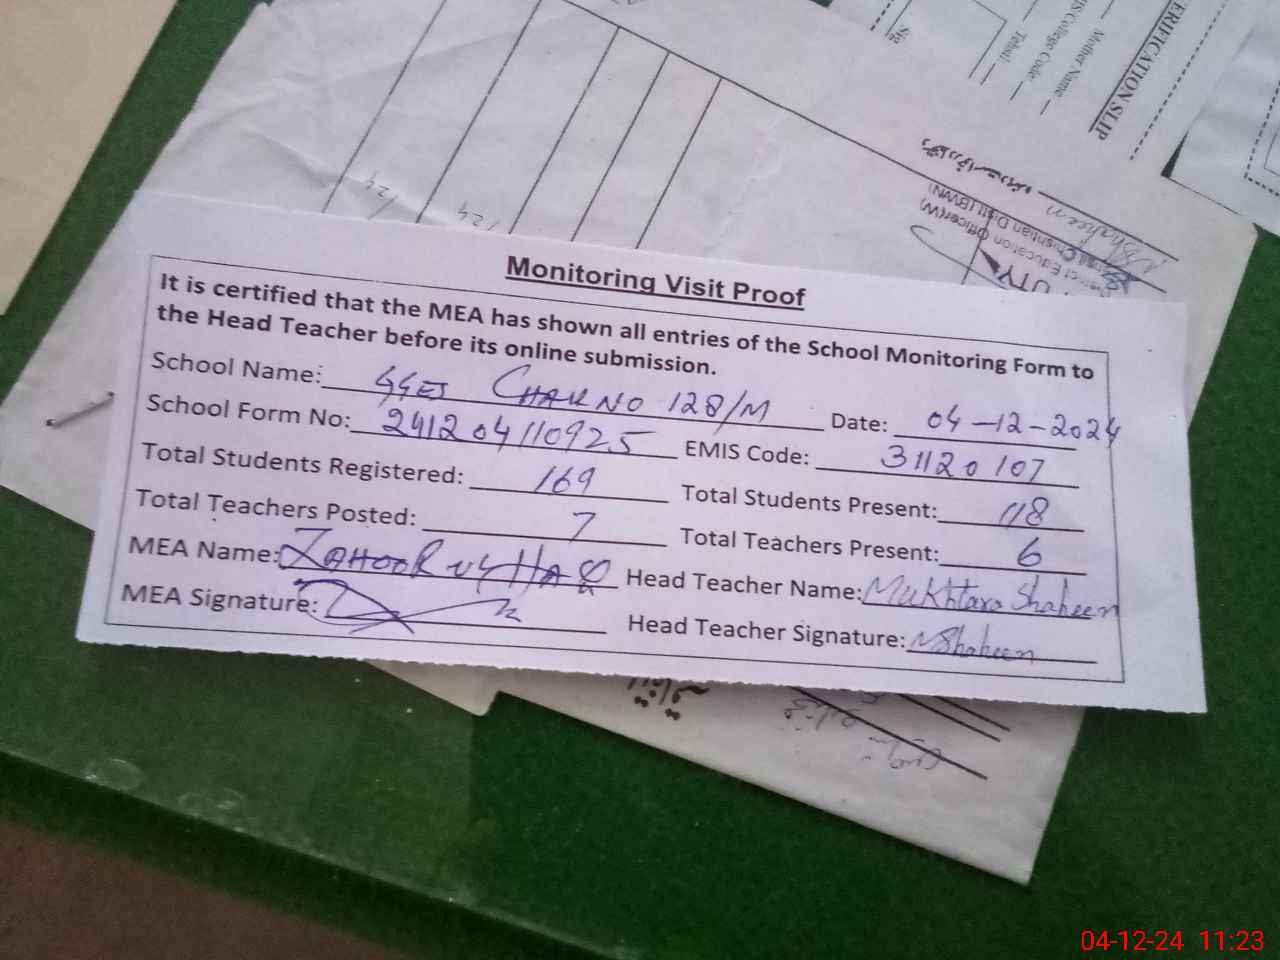 ERIFICATION SLIP
Mother Name
IS College Code:
Tehsil:
Sig
Shaheen
Education Officer(W)
Chishtian Distt (BWN)
24
24
Monitoring Visit Proof
It is certified that the MEA has shown all entries of the School Monitoring Form to
the Head Teacher before its online submission.
School Name: GGES CHAK NO 128/M Date: 04-12-2024
School Form No: 241204110925 EMIS Code: 31120107
Total Students Registered: 169 Total Students Present: 118
Total Teachers Posted: 7 Total Teachers Present: 6
MEA Name: ZAHOOR UL HAQ Head Teacher Name: Mukhtara Shaheen
MEA Signature: Head Teacher Signature: MShaheen
04-12-24 11:23